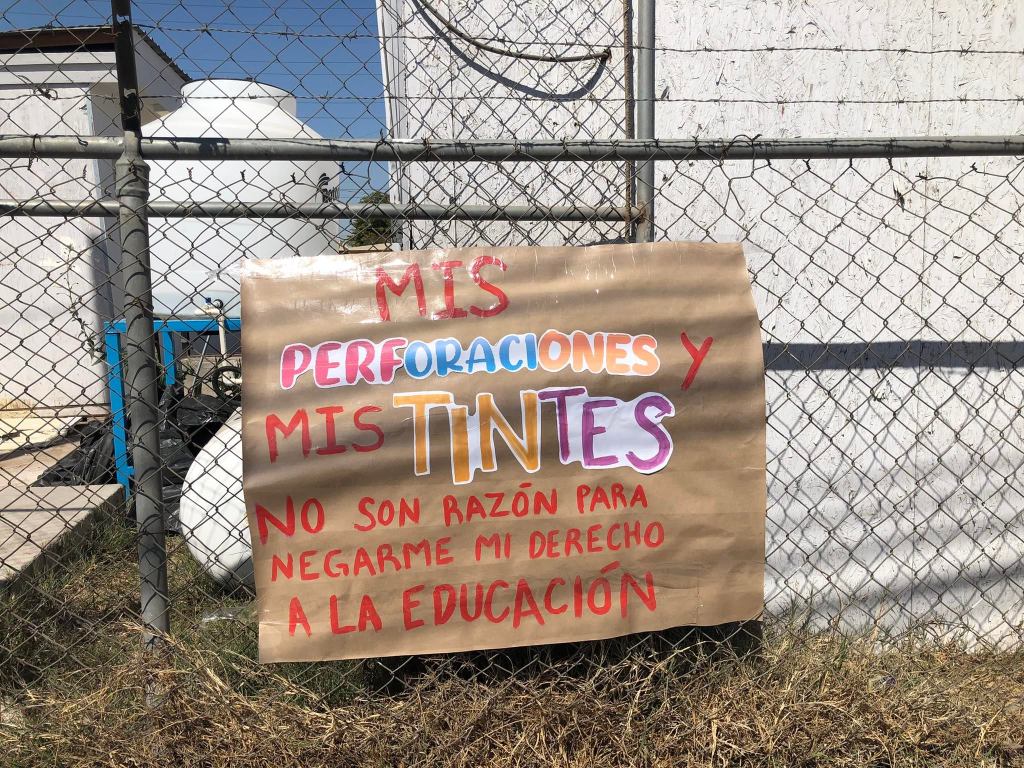 MIS
PERFORACIONES Y
MIS TINTES
NO SON RAZÓN PARA
NEGARME MI DERECHO
A LA EDUCACIÓN